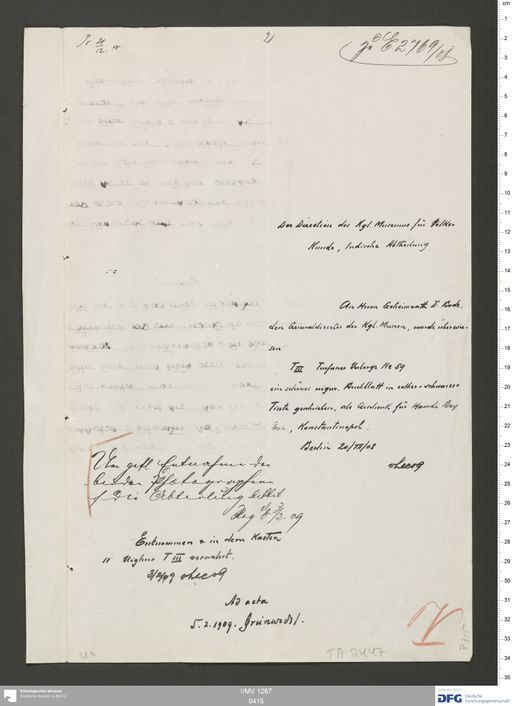 E 2769/08
Der Direction des Kgl. Museums für Völker
Kunde, Indische Abtheilung
An Herrn Geheimrath D. Bode
den Generaldirector der Kgl. Museen, wurde überwie-
sen
T III Turfaner Vorberge No 59
ein schönes uigur. Buchblatt in rother + schwarzer
Tinte geschrieben, als Geschenk für Hamdi Bey
Exc., Konstantinopel.
Berlin 20/XII/08
vLecoq
Um gefl. Entnahme der
beiden Photographien
f. die Abteilung bittet
2. 09
Entnommen & in dem Kasten
Uighur T III verwahrt.
3/2/09 vLecoq
Ad acta
5.2.1909. Grünwedel.
TA 2447
Ethnologisches Museum
Staatliche Museen zu Berlin
I/MV 1267
0415
DFG Deutsche
Forschungsgemeinschaft